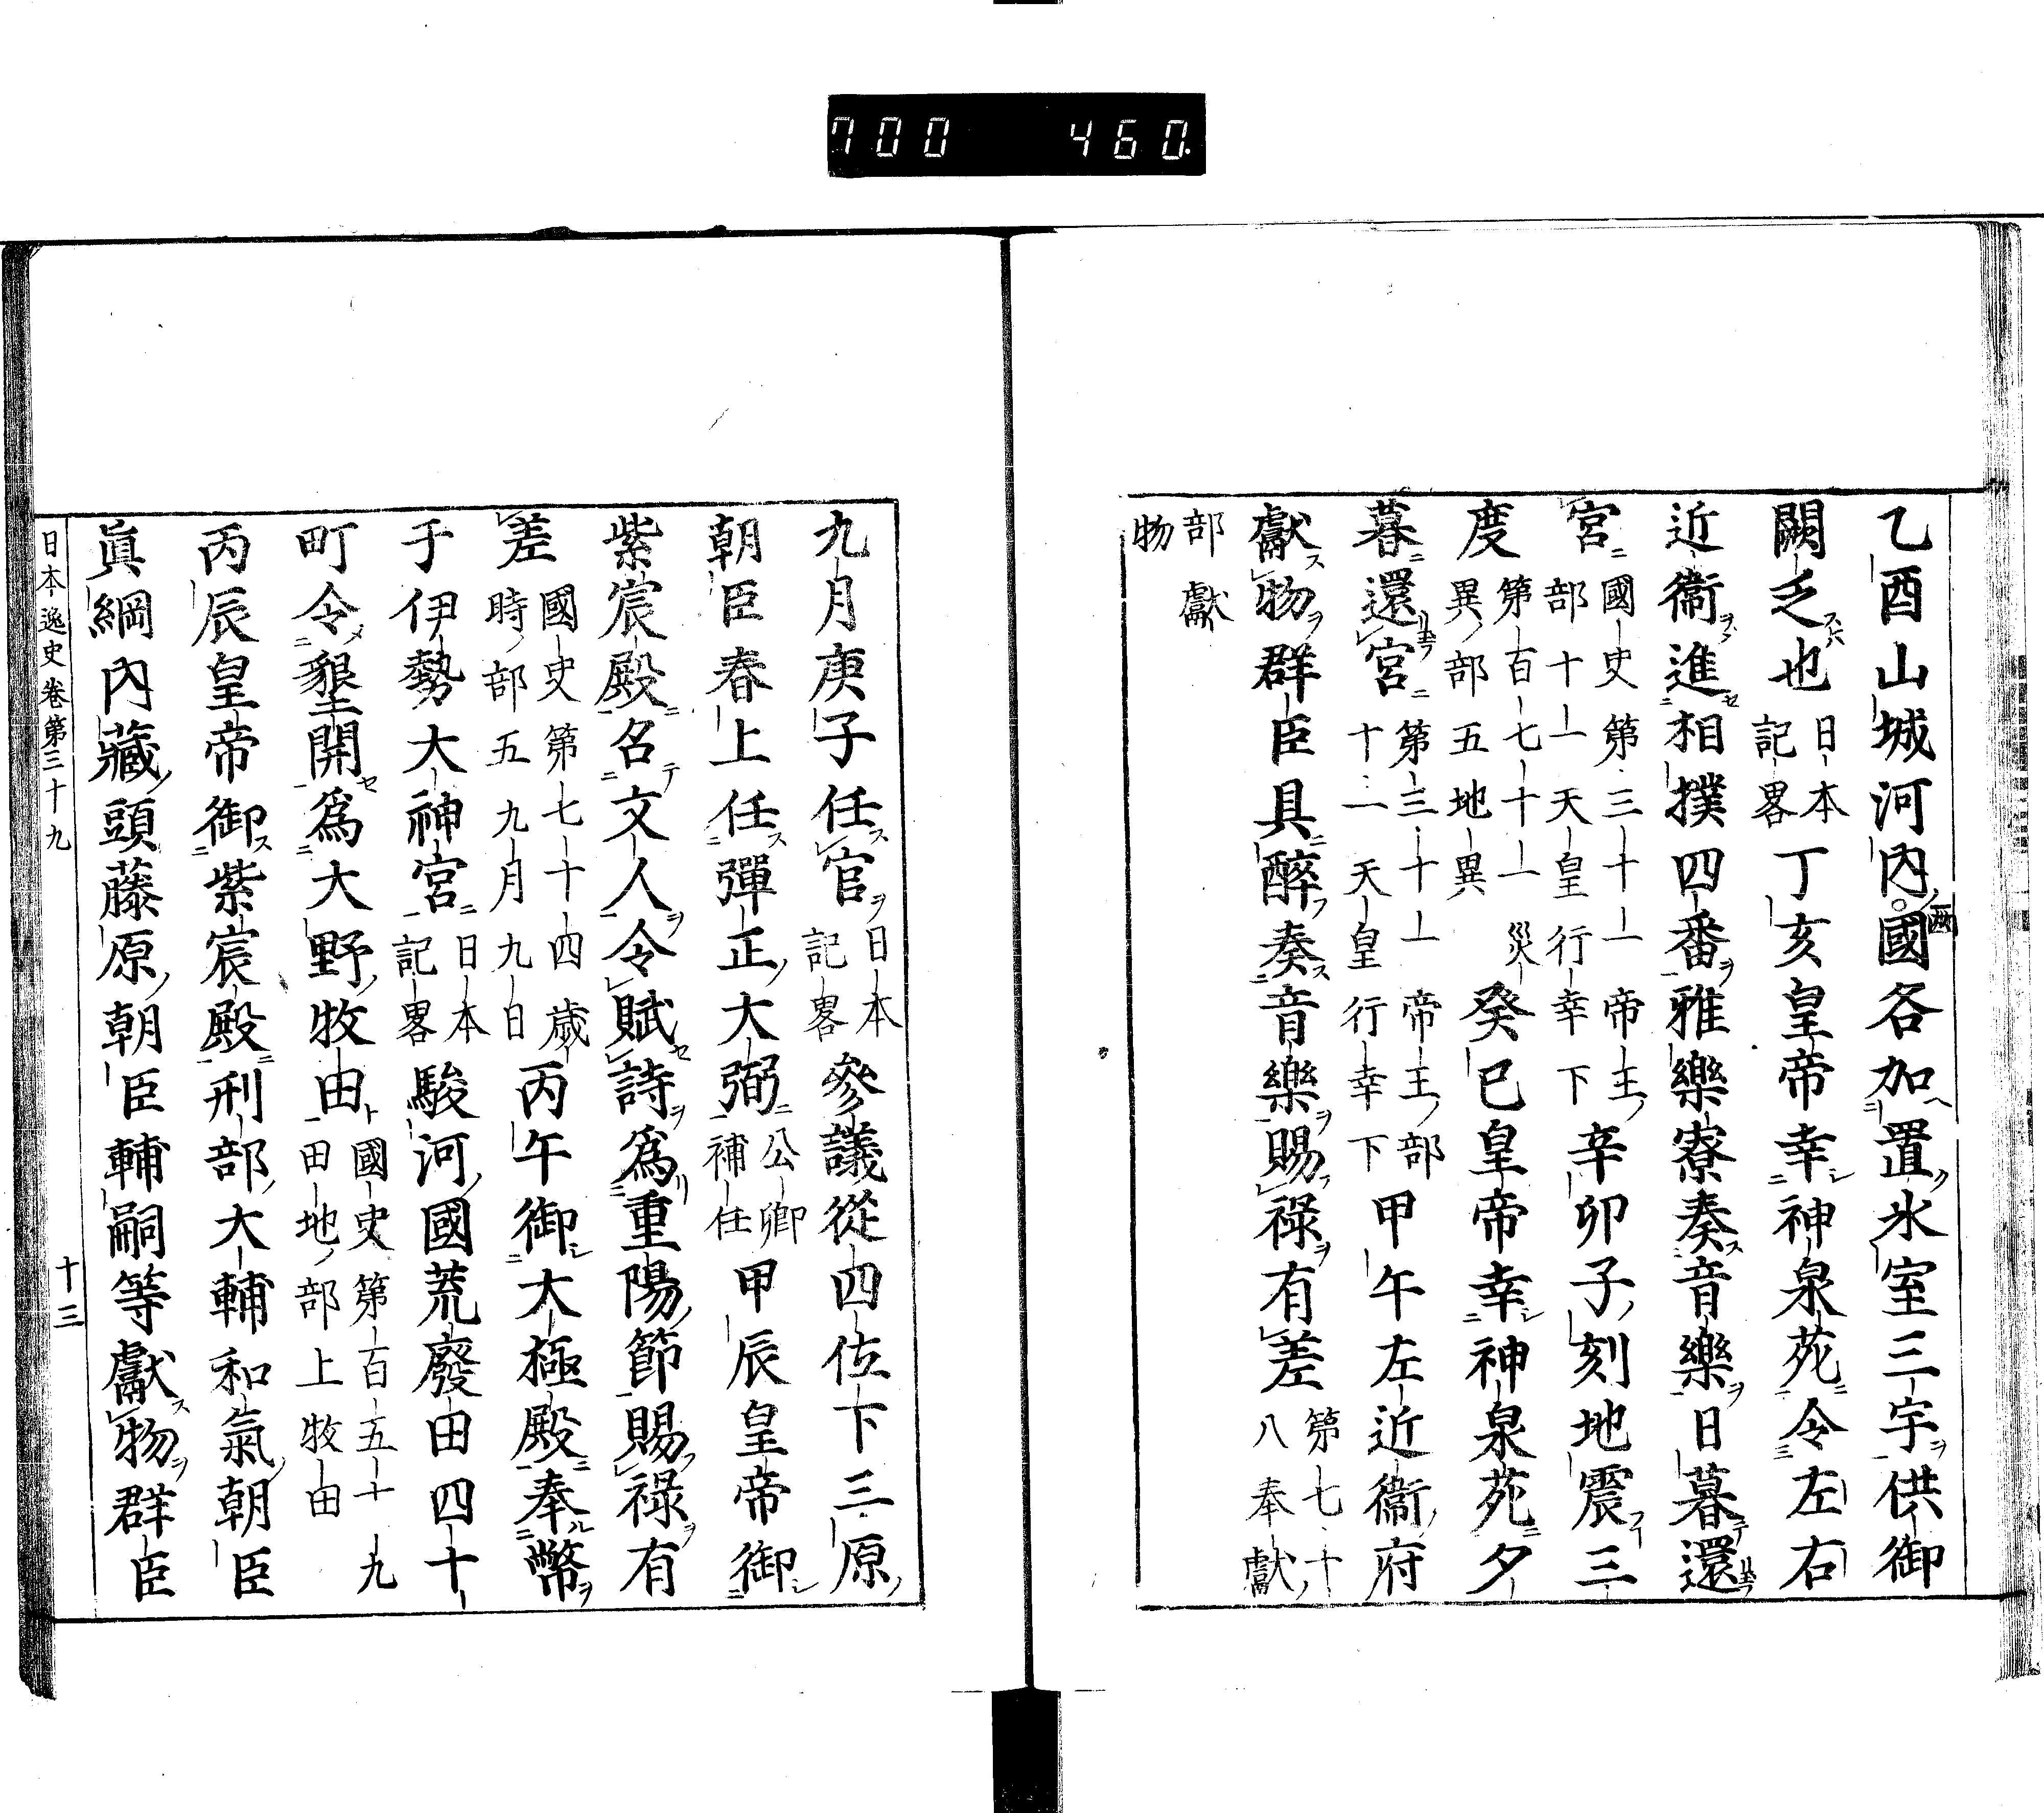 700 460
乙酉山城河內兩國各加置氷室三宇供御
闕乏也日本記畧丁亥皇帝幸神泉苑令左右
近衞進相撲四番雅樂寮奏音樂日暮還
宮國史第三十一帝王部十一天皇行幸下辛卯子刻地震三
度第百七十一災異部五地異癸巳皇帝幸神泉苑夕
暮還宮第三十一帝王部十一天皇行幸下甲午左近衞府
獻物群臣具醉奏音樂賜祿有差第七十八奉獻
部獻物
九月庚子任官日本記畧參議從四位下三原
朝臣春上任彈正大弼公卿補任甲辰皇帝御
紫宸殿名文人令賦詩爲重陽節賜祿有
差國史第七十四歲時部五九月九日丙午御大極殿奉幣
于伊勢大神宮日本記畧駿河國荒廢田四十
町令墾開爲大野牧田國史第百五十九田地部上牧田
丙辰皇帝御紫宸殿刑部大輔和氣朝臣
眞綱內藏頭藤原朝臣輔嗣等獻物群臣
日本逸史卷第三十九 十三